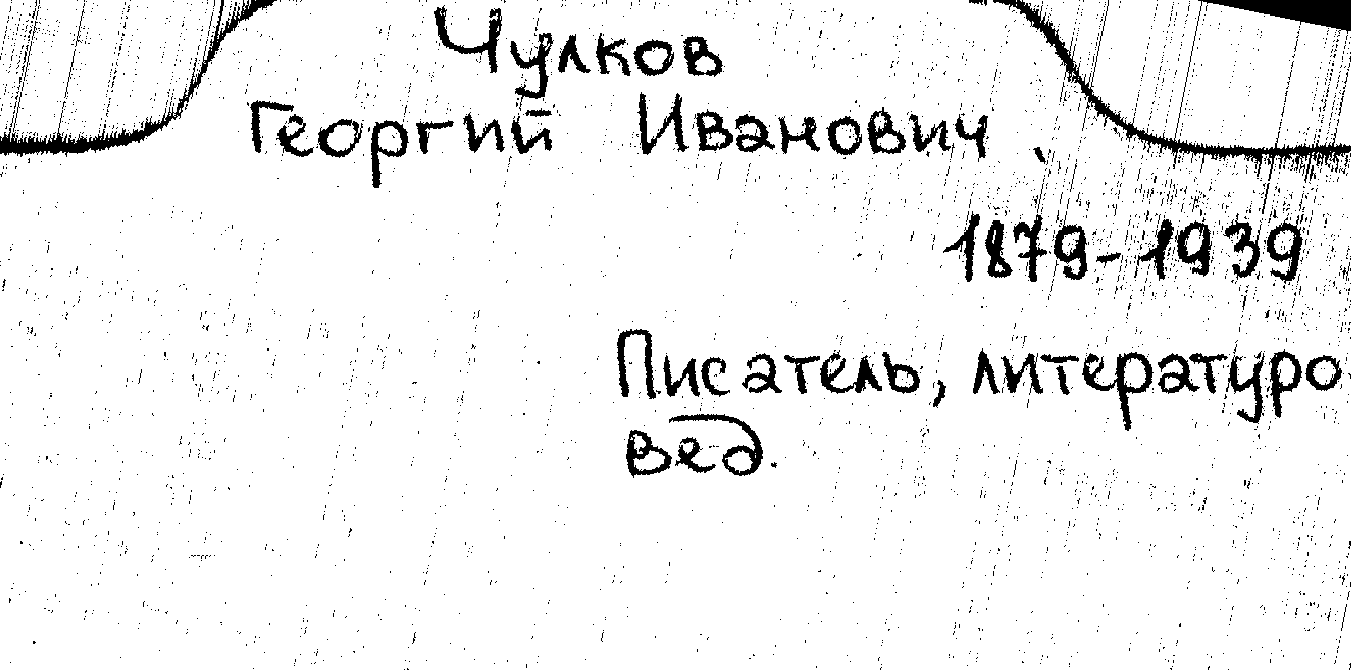 Чулков
Георгий Иванович
1879-1939
Писатель, литературо
вед.